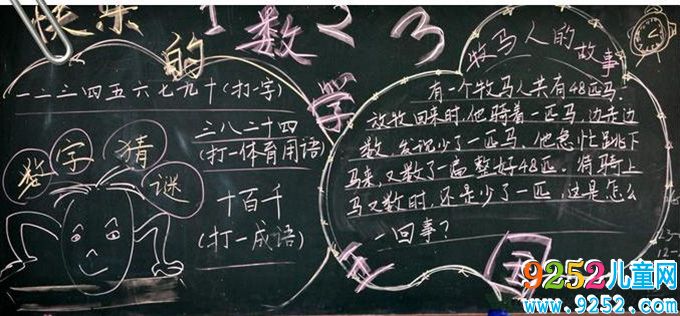 快乐的1数2 3
学
一二三四五六七九十(打一字)
三八二十四
(打一体育用语)
数字猜谜
十百千
(打一成语)
牧马人的故事
有一个牧马人共有48匹马.
放牧回来时,他骑着一匹马,边走边
数,发现少了一匹马,他急忙跳下
马来,又数了一遍整好48匹.待骑上
马又数时,还是少了一匹,这是怎么
一回事?
9252儿童网
www.9252.com